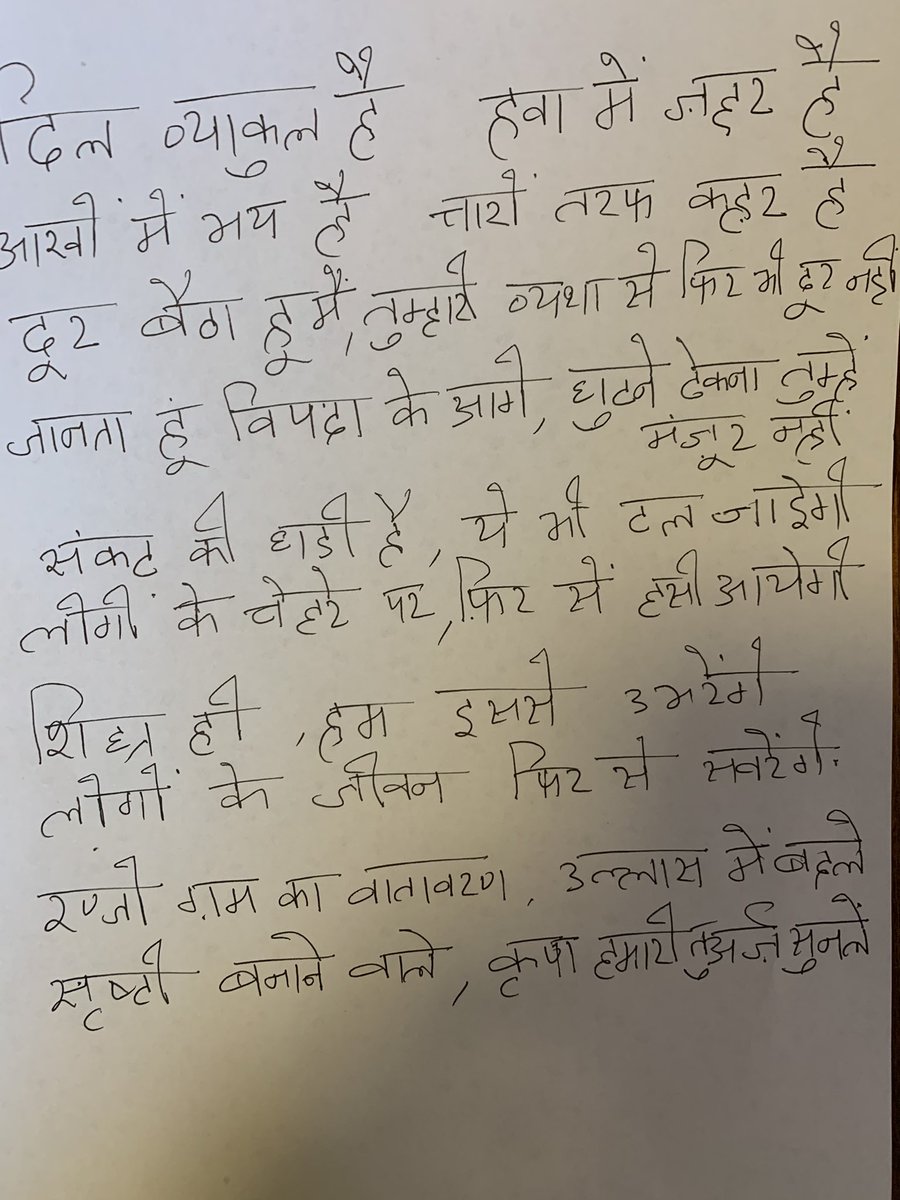 दिल व्याकुल है हवा में ज़हर है
आखों में भय है चारों तरफ कहर है
दूर बैठा हू मैं, तुम्हारी व्यथा से फिर भी दूर नहीं
जानता हूं विपदा के आगे, घुटने टेकना तुम्हें
मंजूर नहीं
संकट की घडी है, ये भी टल जाइेगी
लोगों के चेहरे पर, फ़िर सें हसी आयेगी
शिघ्र ही, हम इससे उभरेंगे
लोगों के जीवन फिर से सवरेंगे.
रण्जो ग़म का वातावरण, उल्लास में बदले
सृष्टी बनाने वाले, कृपा हमारी तु अर्ज़ सुनलें